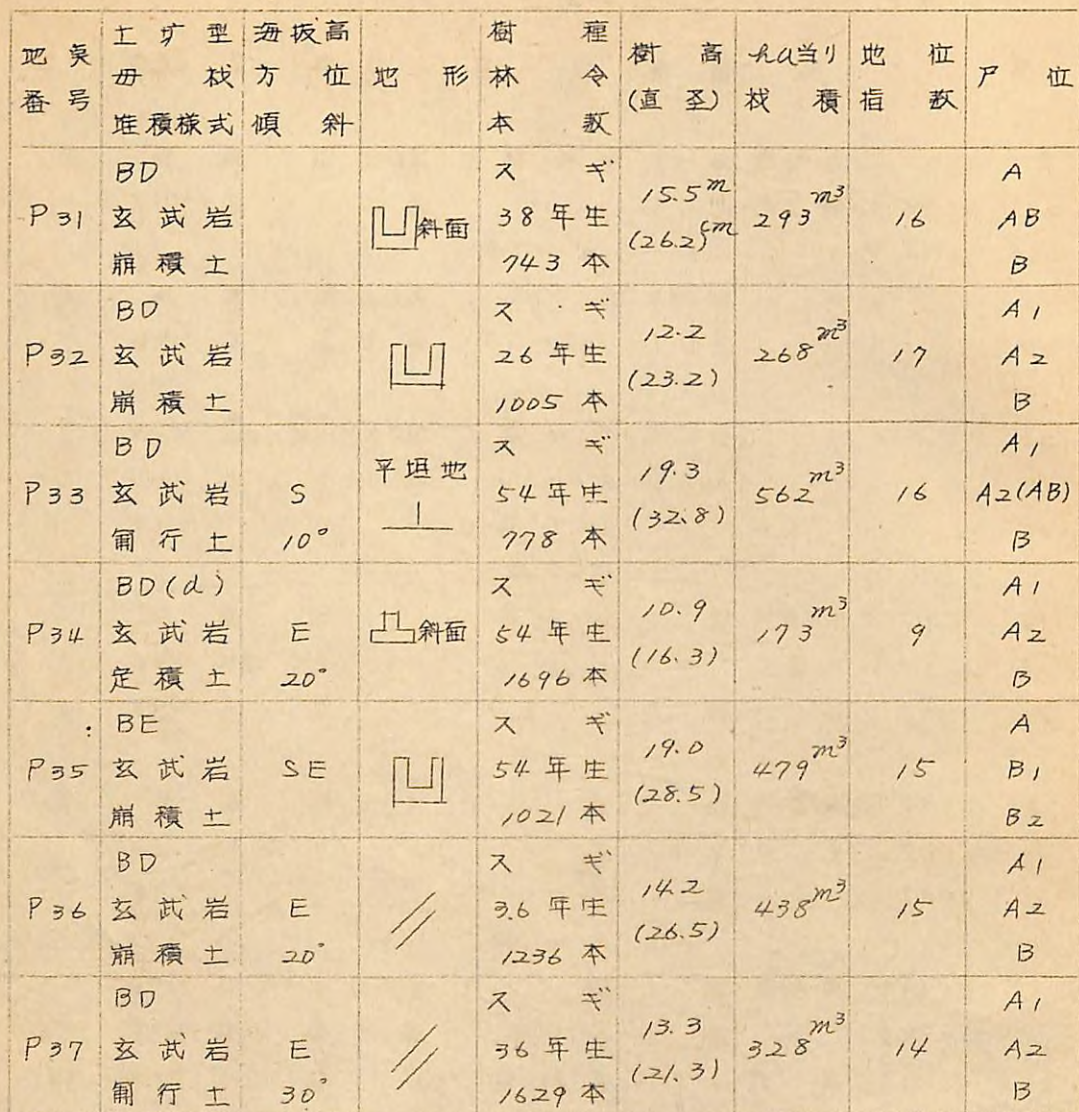 地点番号 土す型 母材 堆積様式 海抜高 方位 傾斜 地形 樹種 林令 本数 樹高(直圣) ha当り材積 地位指数 尸位
P31 BD 玄武岩 崩積土 凹斜面 スギ 38年生 743本 15.5m (26.2)cm 293m³ 16 A AB B
P32 BD 玄武岩 崩積土 凹 スギ 26年生 1005本 12.2 (23.2) 268m³ 17 A1 A2 B
P33 BD 玄武岩 匍行土 S 10° 平坦地 スギ 54年生 778本 19.3 (32.8) 562m³ 16 A1 A2(AB) B
P34 BD(d) 玄武岩 定積土 E 20° 凸斜面 スギ 54年生 1696本 10.9 (16.3) 173m³ 9 A1 A2 B
P35 BE 玄武岩 崩積土 SE 凹 スギ 54年生 1021本 19.0 (28.5) 479m³ 15 A B1 B2
P36 BD 玄武岩 崩積土 E 20° // スギ 3.6年生 1236本 14.2 (26.5) 438m³ 15 A1 A2 B
P37 BD 玄武岩 匍行土 E 30° // スギ 36年生 1629本 13.3 (21.3) 328m³ 14 A1 A2 B